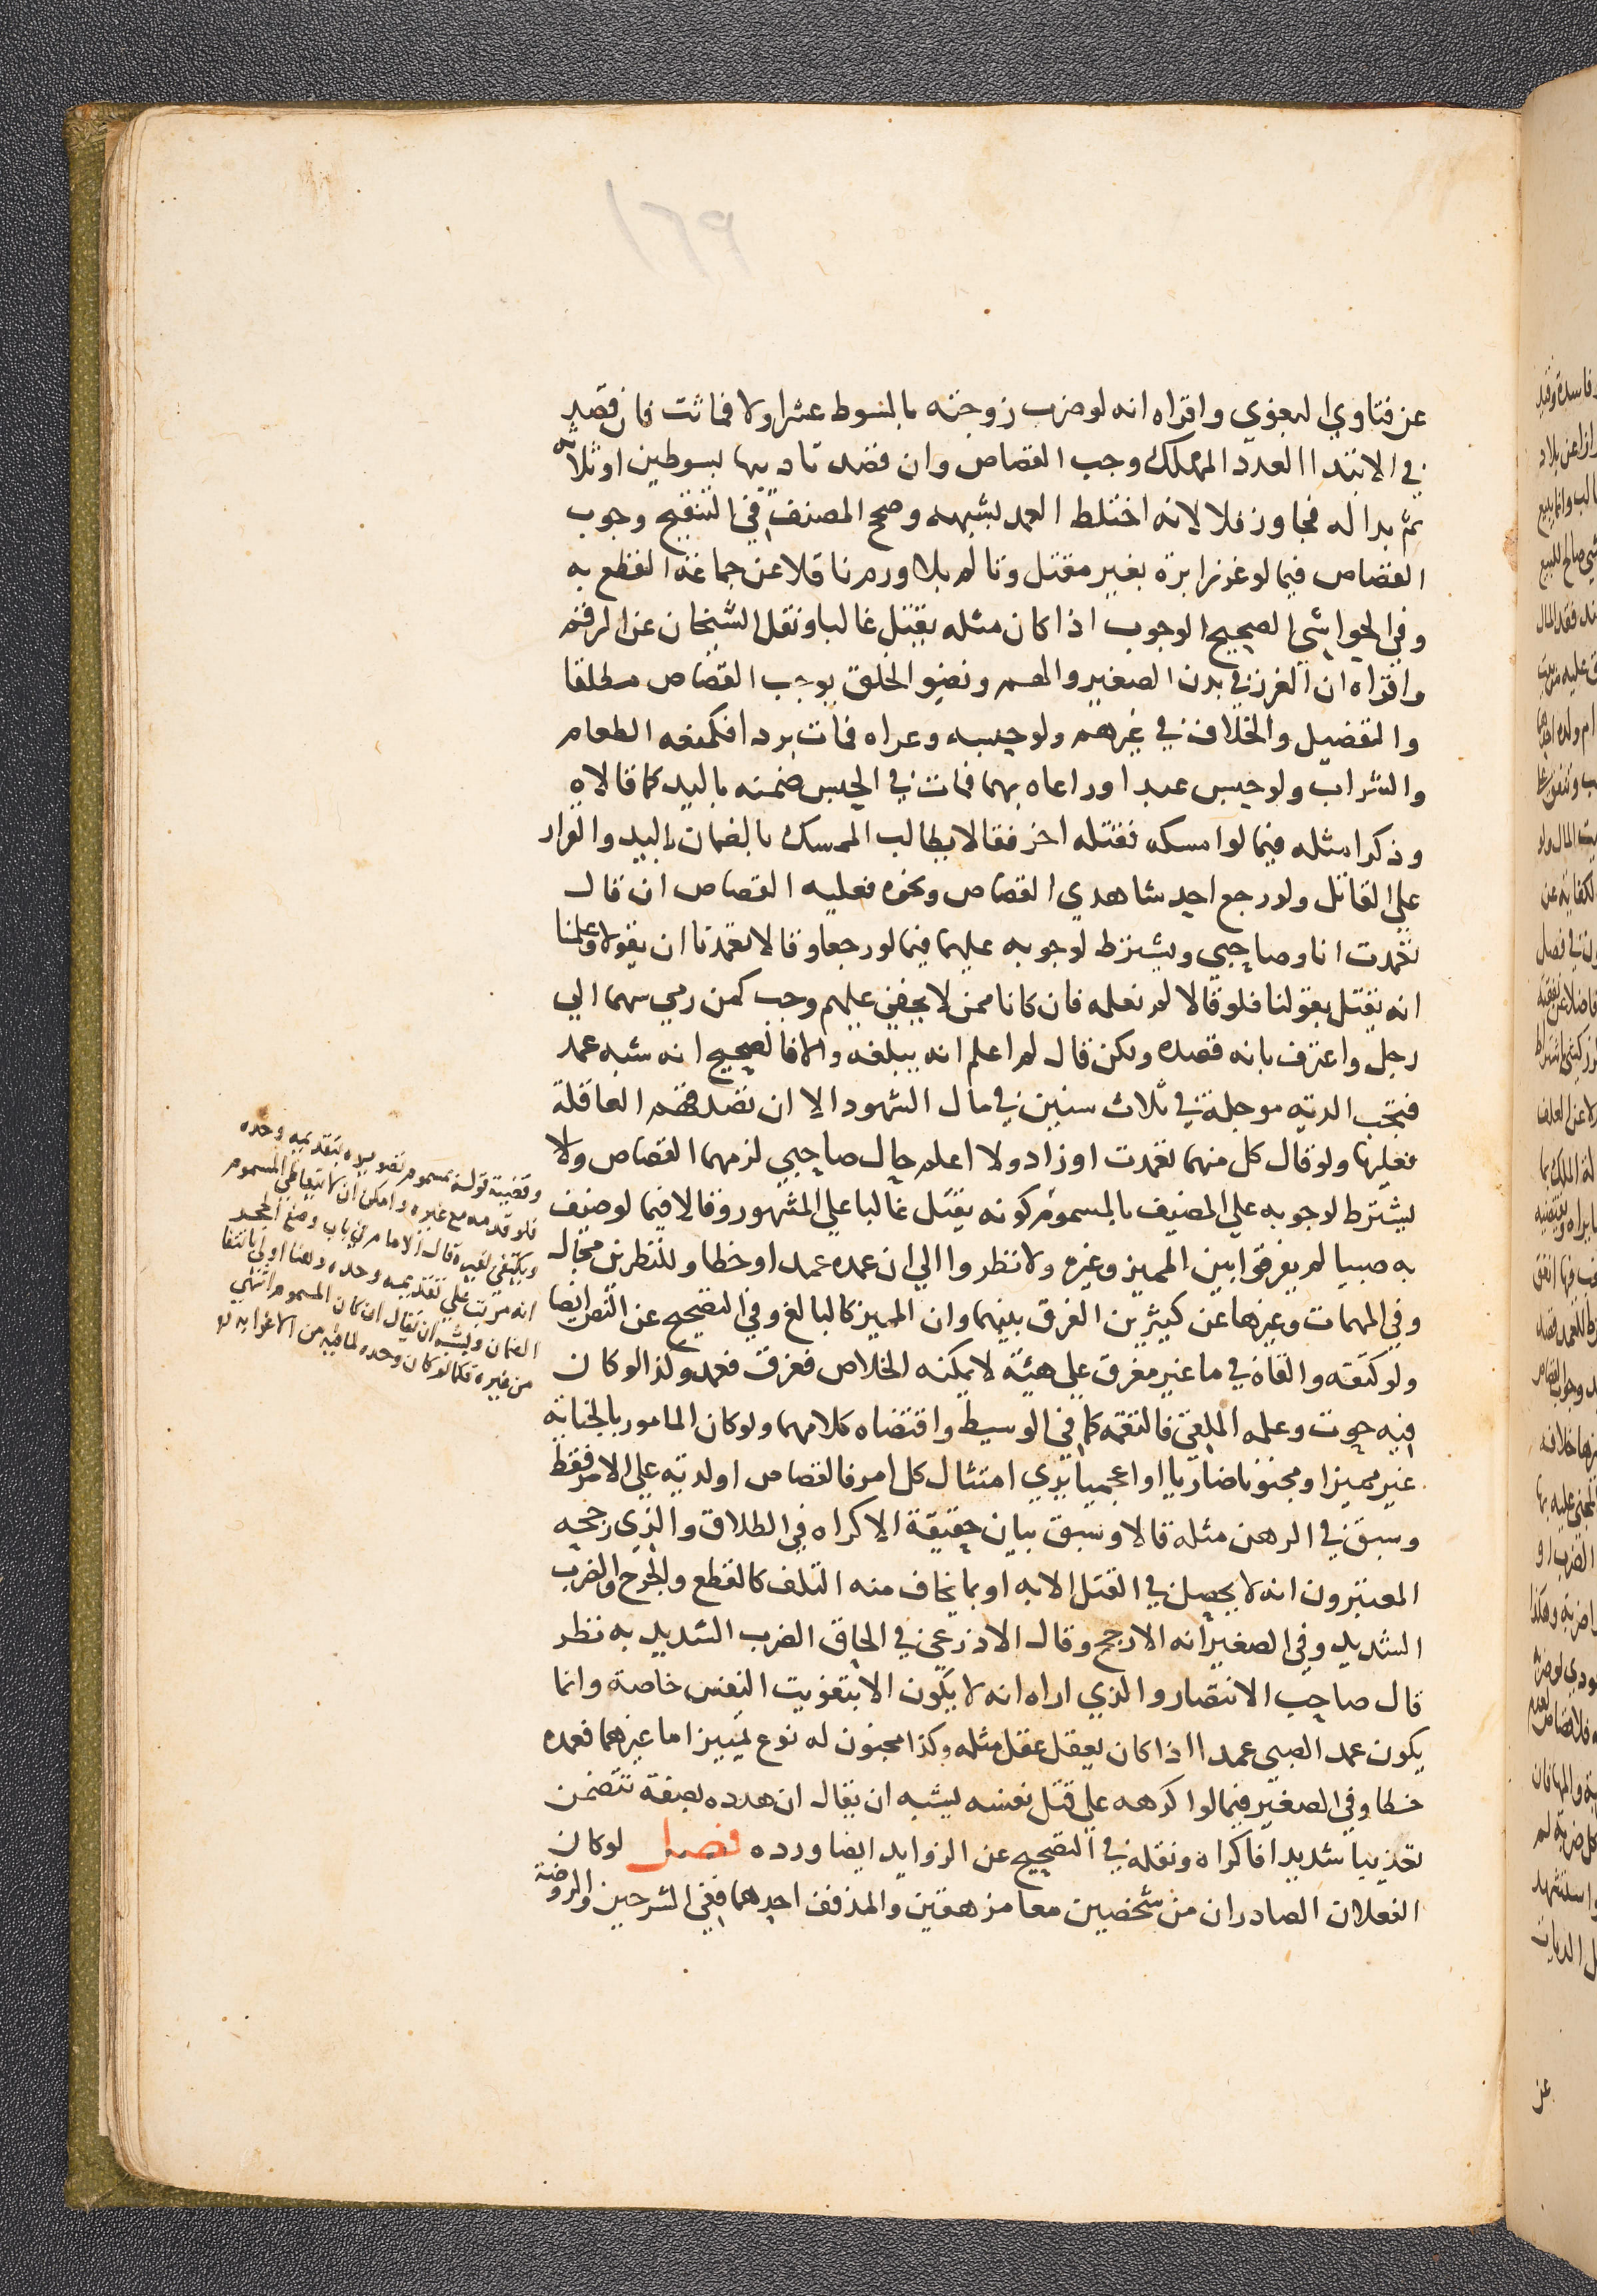 ١٦٩
عن فتاوي البغوي واقراه انه لو ضرب زوجته بالسوط عشرا ولا فماتت فان قصد
في الابتداا العدد المهلك وجب القصاص وان قصد تاديبها بسوطين او ثلاثة
ثم بدا له فجاوز فلا لانه اختلط العمد بشبهه وصح المصنف في التنقيح وجوب
القصاص فيما لو غرز ابرة بغير مقتل وتالم بلا ورم ناقلا عن جماعة القطع به
وفي الحواشي الصحيح الوجوب اذا كان مثله يقتل غالبا ونقل الشيخان عن الرقم
واقراه ان الغرز في بدن الصغير والهم ونضو الخلق يوجب القصاص مطلقا
والتفصيل والخلاف في غيرهم ولو حبسه وعراه فمات بردا فكمنعه الطعام
والشراب ولو حبس عبدا وراعاه بهما فمات في الحبس ضمنه باليد كما قالاه
وذكرا مثله فيما لو امسكه فقتله اخر فقالا يطالب الممسك بالضمان باليد والقرار
علي القاتل ولو رجع احد شاهدي القصاص ونحوه فعليه القصاص ان قال
تعمدت انا وصاحبي ويشترط لوجوبه عليهما فيما لو رجعا وقالا تعمدنا ان يقولا وعلمنا
انه يقتل بقولنا فلو قالا لم نعلمه فان كانا ممن لا يخفي عليهم وجب كمن رمي سهما الي
رجل واعترف بانه قصده ولكن قال لم اعلم انه يبلغه والا فالصحيح انه شبه عمد
فتجب الدية موجلة في ثلاث سنين في مال الشهود الا ان تصدقهم العاقلة
فعليها ولو قال كل منهما تعمدت او زاد ولا اعلم حال صاحبي لزمهما القصاص ولا
يشترط لوجوبه علي المضيف بالمسموم كونه يقتل غالبا علي المشهور وقالا فيما لو ضيف
به صبيا لم يفرقوا بين المميز وغيره ولا نظروا الي ان عمده عمد او خطا وللنظر فيه مجال
وفي المهمات وغيرها عن كثيرين الفرق بينهما وان المميز كالبالغ وفي التصحيح عن النص ايضا
ولو كتفه والقاه في ما غير مغرق علي هيئة لا يمكنه الخلاص فغرق فعمد وكذا لو كان
فيه حوت وعلمه الملقي فالتقمه كما في الوسيط واقتضاه كلامهما ولو كان المامور بالجناية
غير مميز او مجنونا ضاريا او اعجميا يري امتثال كل امر فالقصاص او لدية علي الامر فقط
وسبق في الرهن مثله قالا وسبق بيان حقيقة الاكراه في الطلاق والذي رجحه
المعتبرون انه لا يحصل في القتل الا به او بما يخاف منه التلف كالقطع والجرح والضرب
الشديد وفي الصغير انه الارجح وقال الاذرعي في الحاق الضرب الشديد به نظر
قال صاحب الانتصار والذي اراه انه لا يكون الا بتفويت النفس خاصة وانما
يكون عمد الصبي عمداا اذا كان يعقل عقل مثله وكذا مجنون له نوع تمييز اما غيرهما فعمده
خطا وفي الصغير فيما لو اكرهه علي قتل نفسه يشبه ان يقال ان هدده بصفة تتضمن
تعذيبا شديدا فاكراه ونقله في التصحيح عن الزوايد ايضا ورده فصل لو كان
الفعلان الصادران من شخصين معا مزهقين والمذفف احدهما ففي الشرحين والروضة
وقضية قوله بمسموم تصويره بتقديمه وحده
فلو قدمه مع غيره وامكن ان لا يتعاطي المسموم
ويكتفي بغيره قال الامام في باب وضع الحجر
انه مرتب علي تقديمه وحده وهنا اولي بانتفا
الضمان ويشبه ان يقال ان كان المسموم اشهي
من غيره فكما لو كان وحده لما فيه من الاغرا به